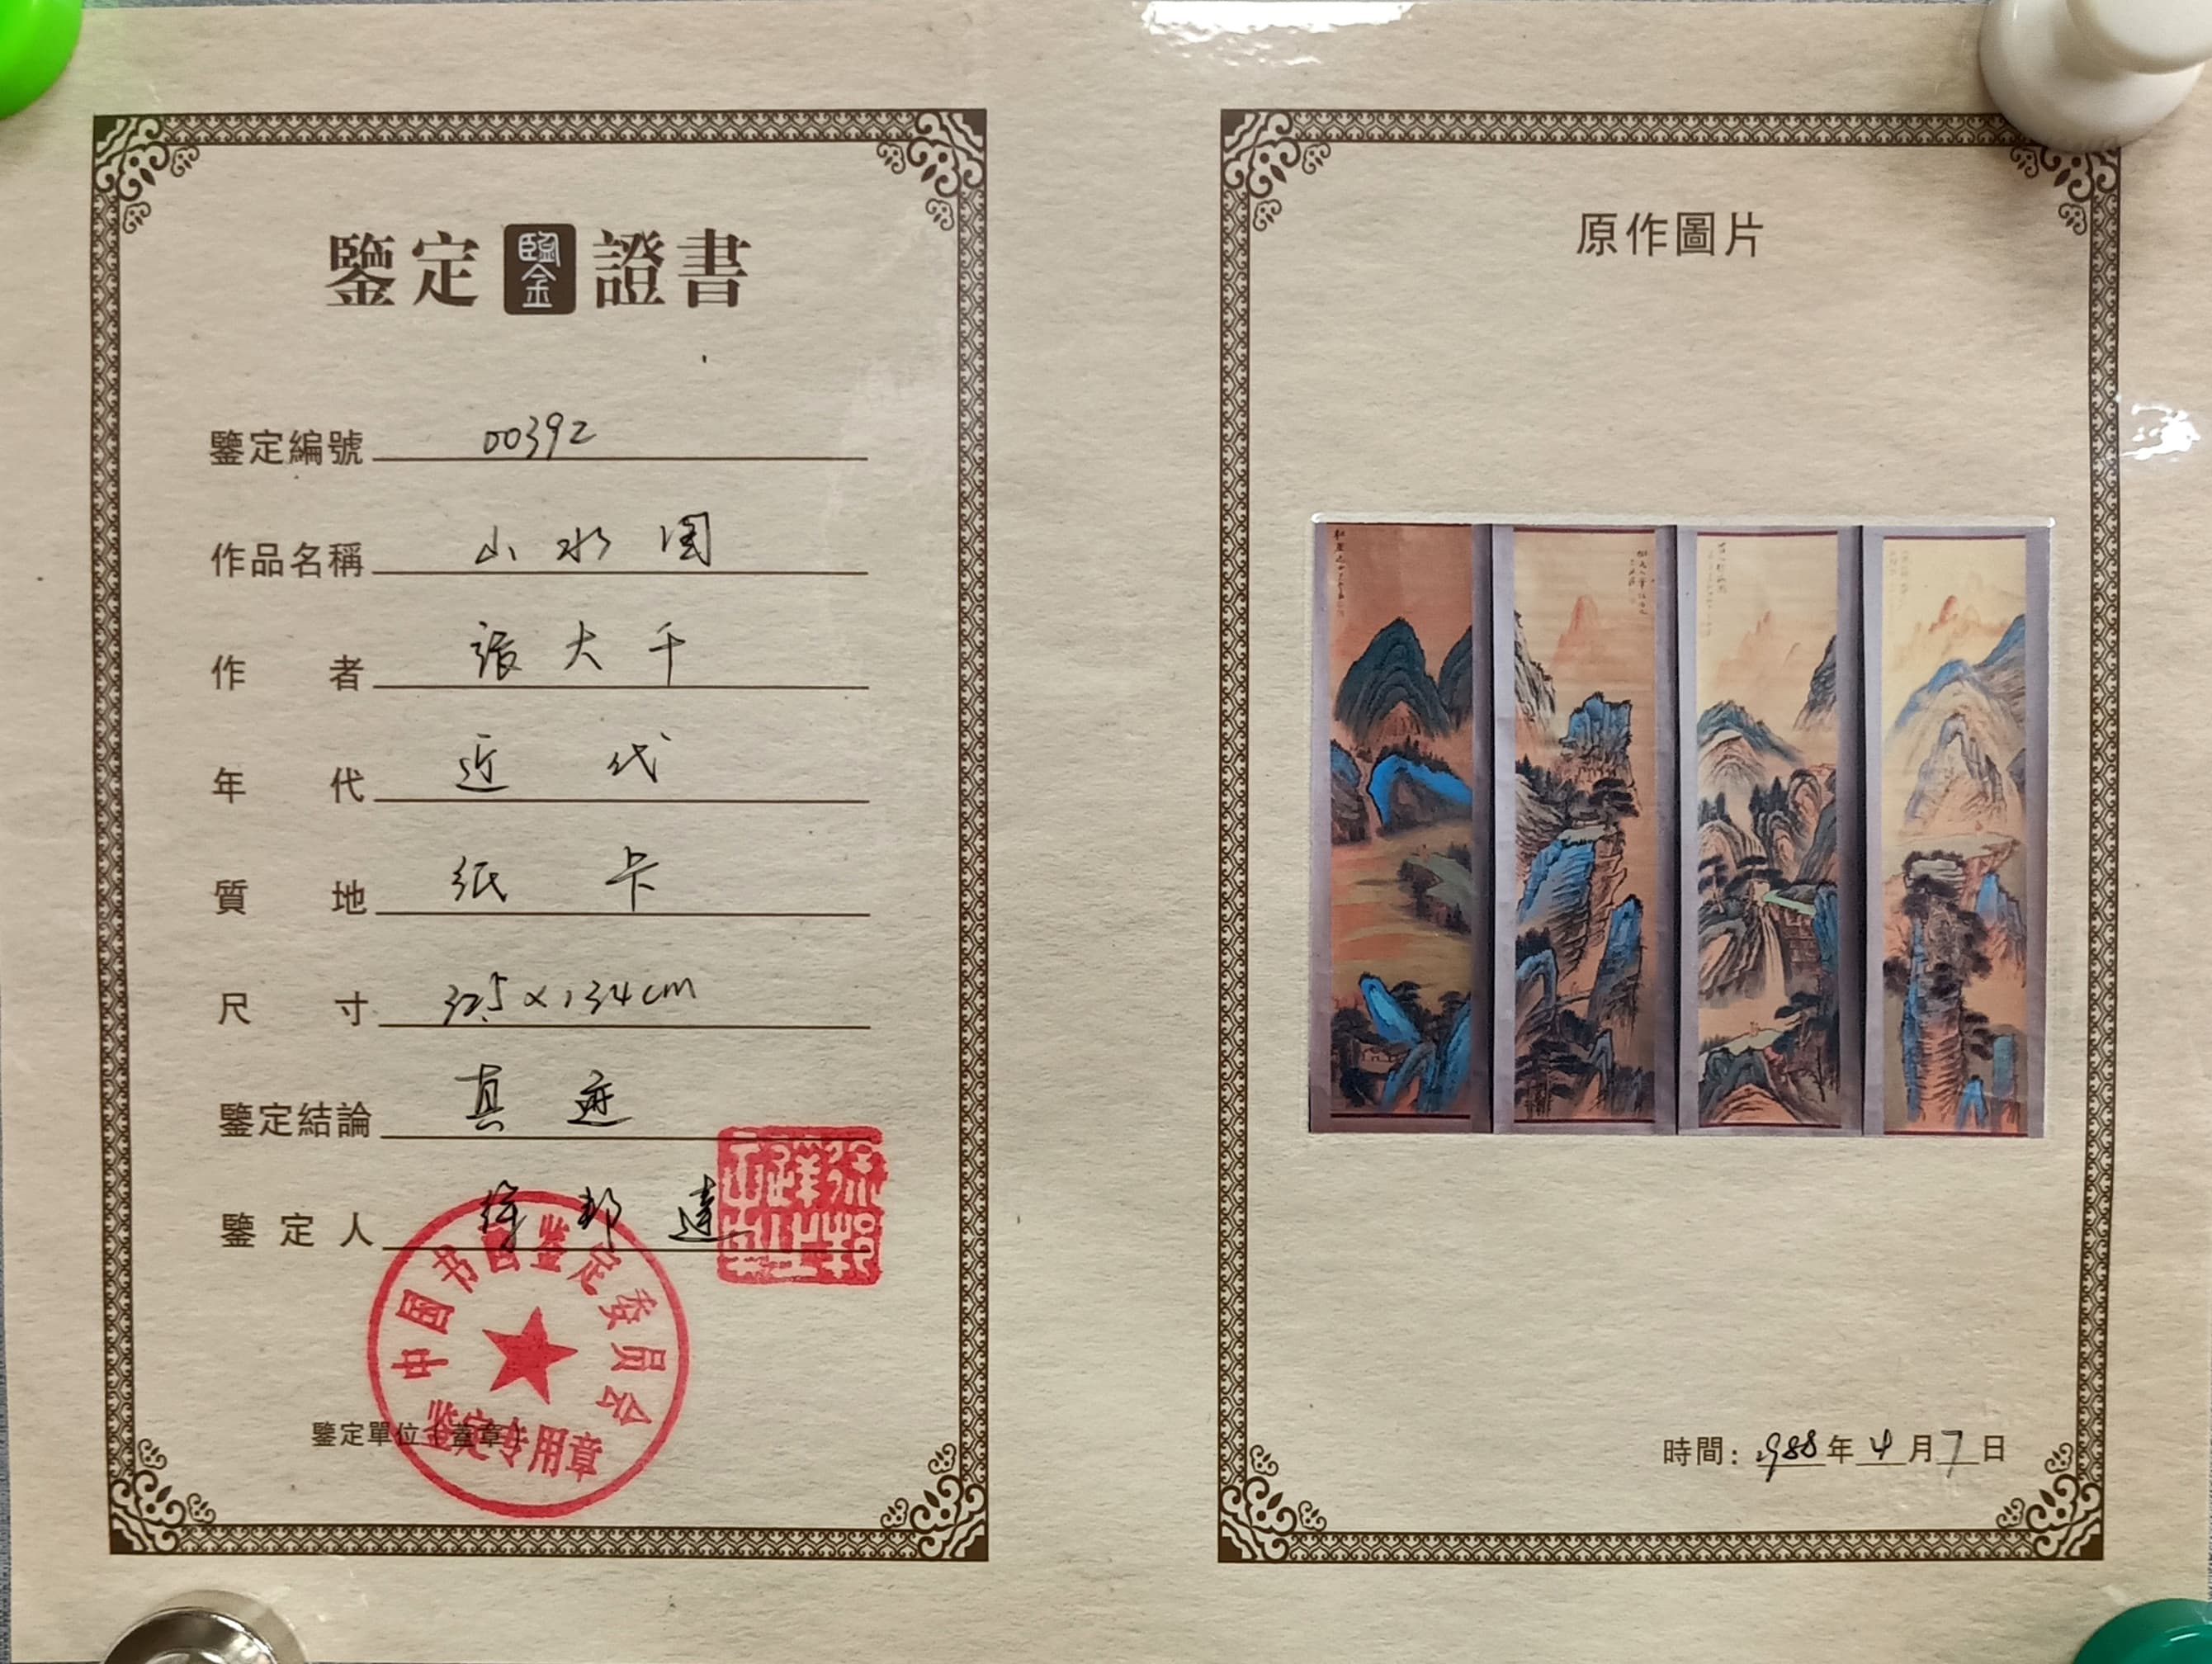 鑒定 鑒 證書
鑒定編號 00392
作品名稱 山水图
作者 張大千
年代 近代
質地 纸卡
尺寸 32.5×134cm
鑒定結論 真迹
鑒定人 徐邦達
中国书画鉴定委员会
鉴定专用章
鑒定單位（蓋章）
原作圖片
時間：1988年4月7日